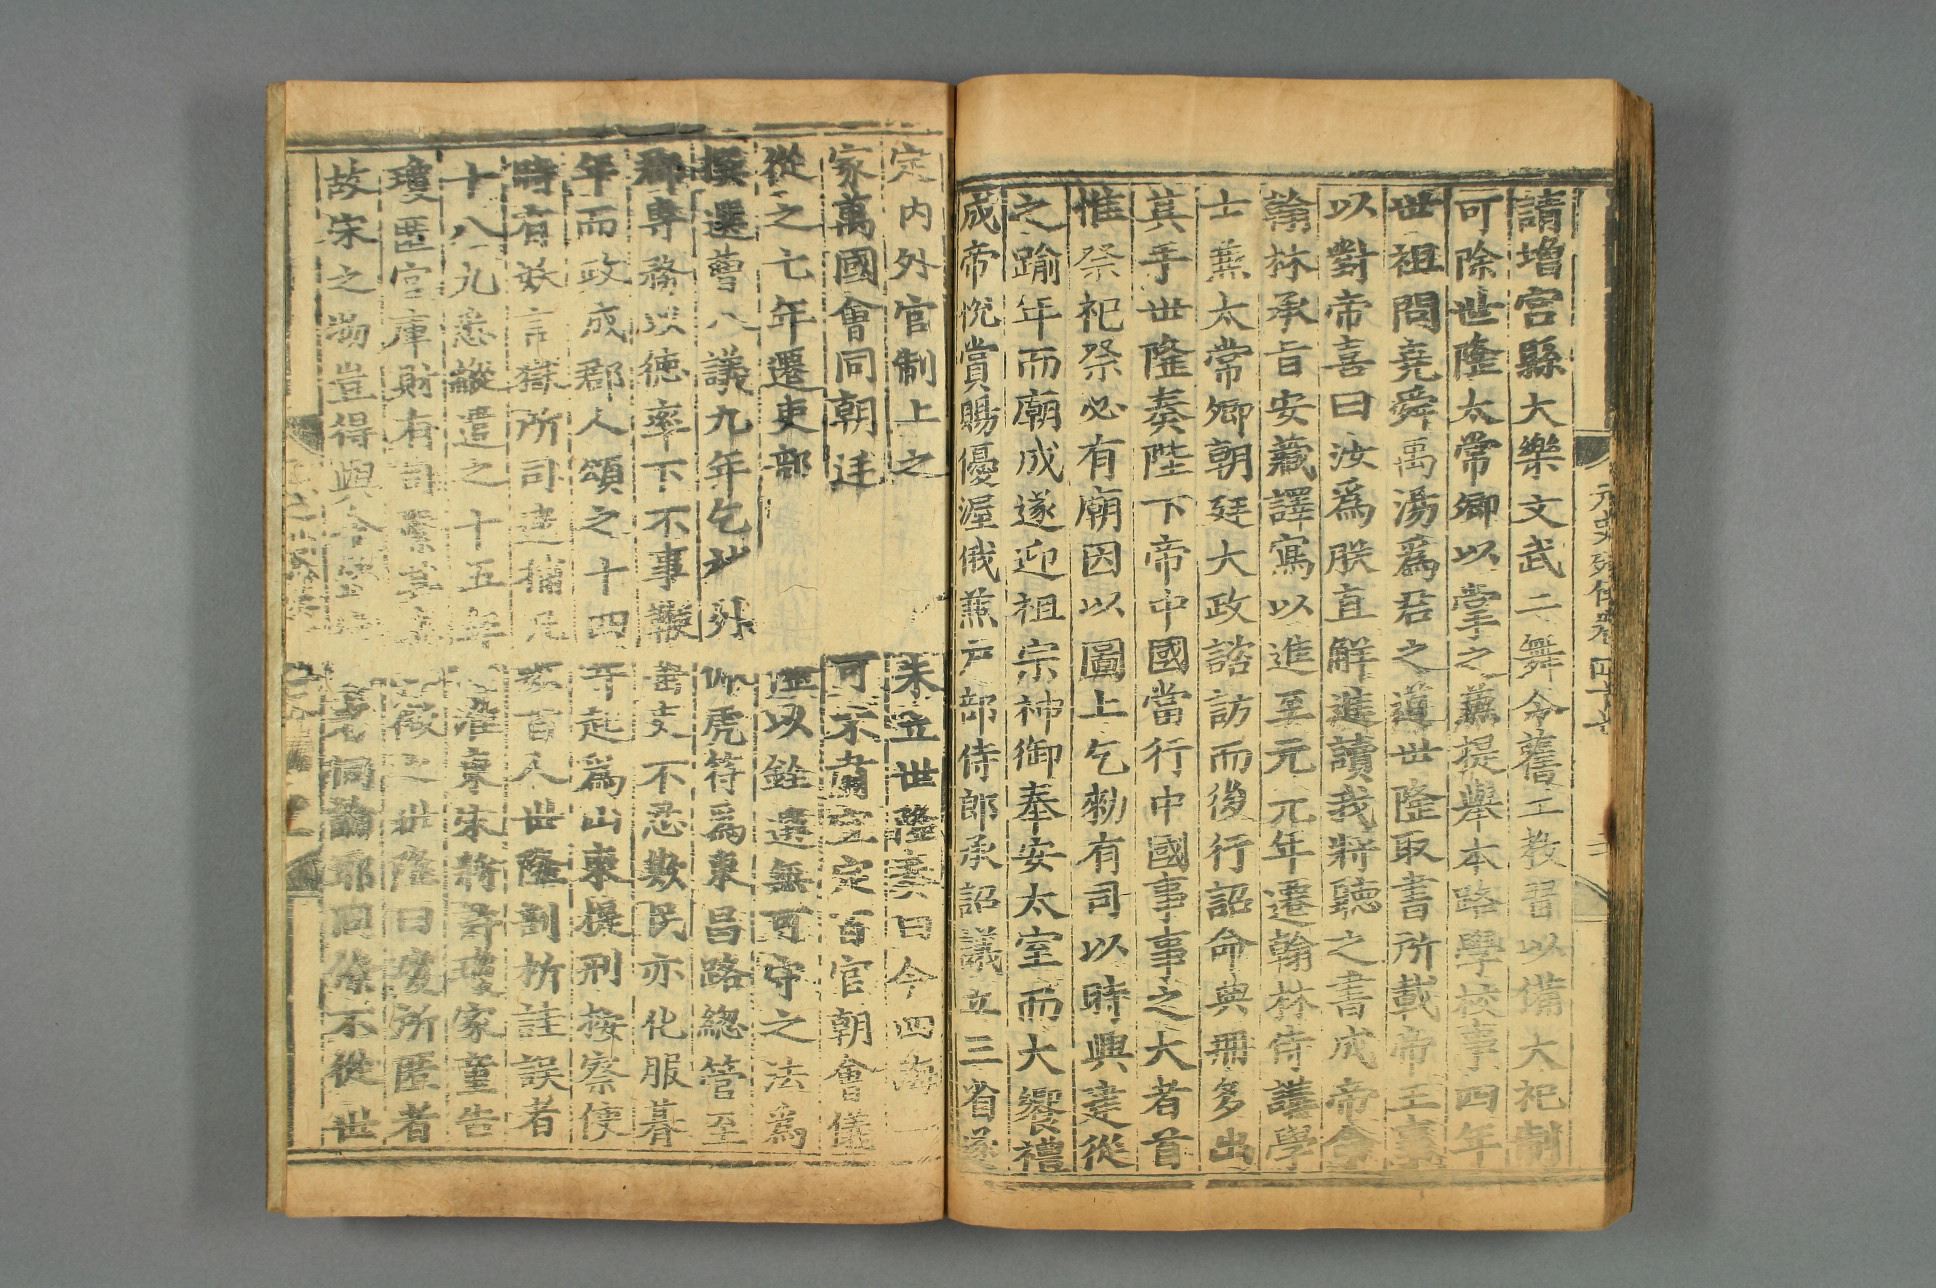 請增宮縣大樂文武二舞令舊工教習以備大祀制
可除世隆太常卿以掌之兼提舉本路學校事四年
世祖問堯舜禹湯爲君之道世隆取書所載帝王事
以對帝喜曰汝爲朕直解進讀我將聽之書成帝命
翰林承旨安藏譯寫以進至元元年遷翰林侍講學
士兼太常卿朝廷大政諮訪而後行詔命典冊多出
其手世隆奏陛下帝中國當行中國事事之大者首
惟祭祀祭必有廟因以圖上乞勑有司以時興建從
之踰年而廟成遂迎祖宗神御奉安太室而大饗禮
成帝悅賞賜優渥俄兼户部侍郎承詔議立三省遂
定内外官制上之 未立世隆奏曰今四海一
家萬國會同朝廷 可不肅宜定百官朝會儀
從之七年遷吏部 以銓選無可守之法爲
撰選 八議九年乞 外 佩虎符爲東昌路總管至
郡專務以德率下不事鞭 吏不忍欺民亦化服朞
年而政成郡人頌之十四年起爲山東提刑按察使
時有妖言獄所司逮捕凡數百人世隆剖析詿誤者
十八九悉縱遣之十五年 淮東宋將 瓊家童告
瓊匿官庫財有司繫其 徵之世隆曰瓊所匿者
故宋之物豈得與今 同論耶同僚不從世
元史列傳卷四十七